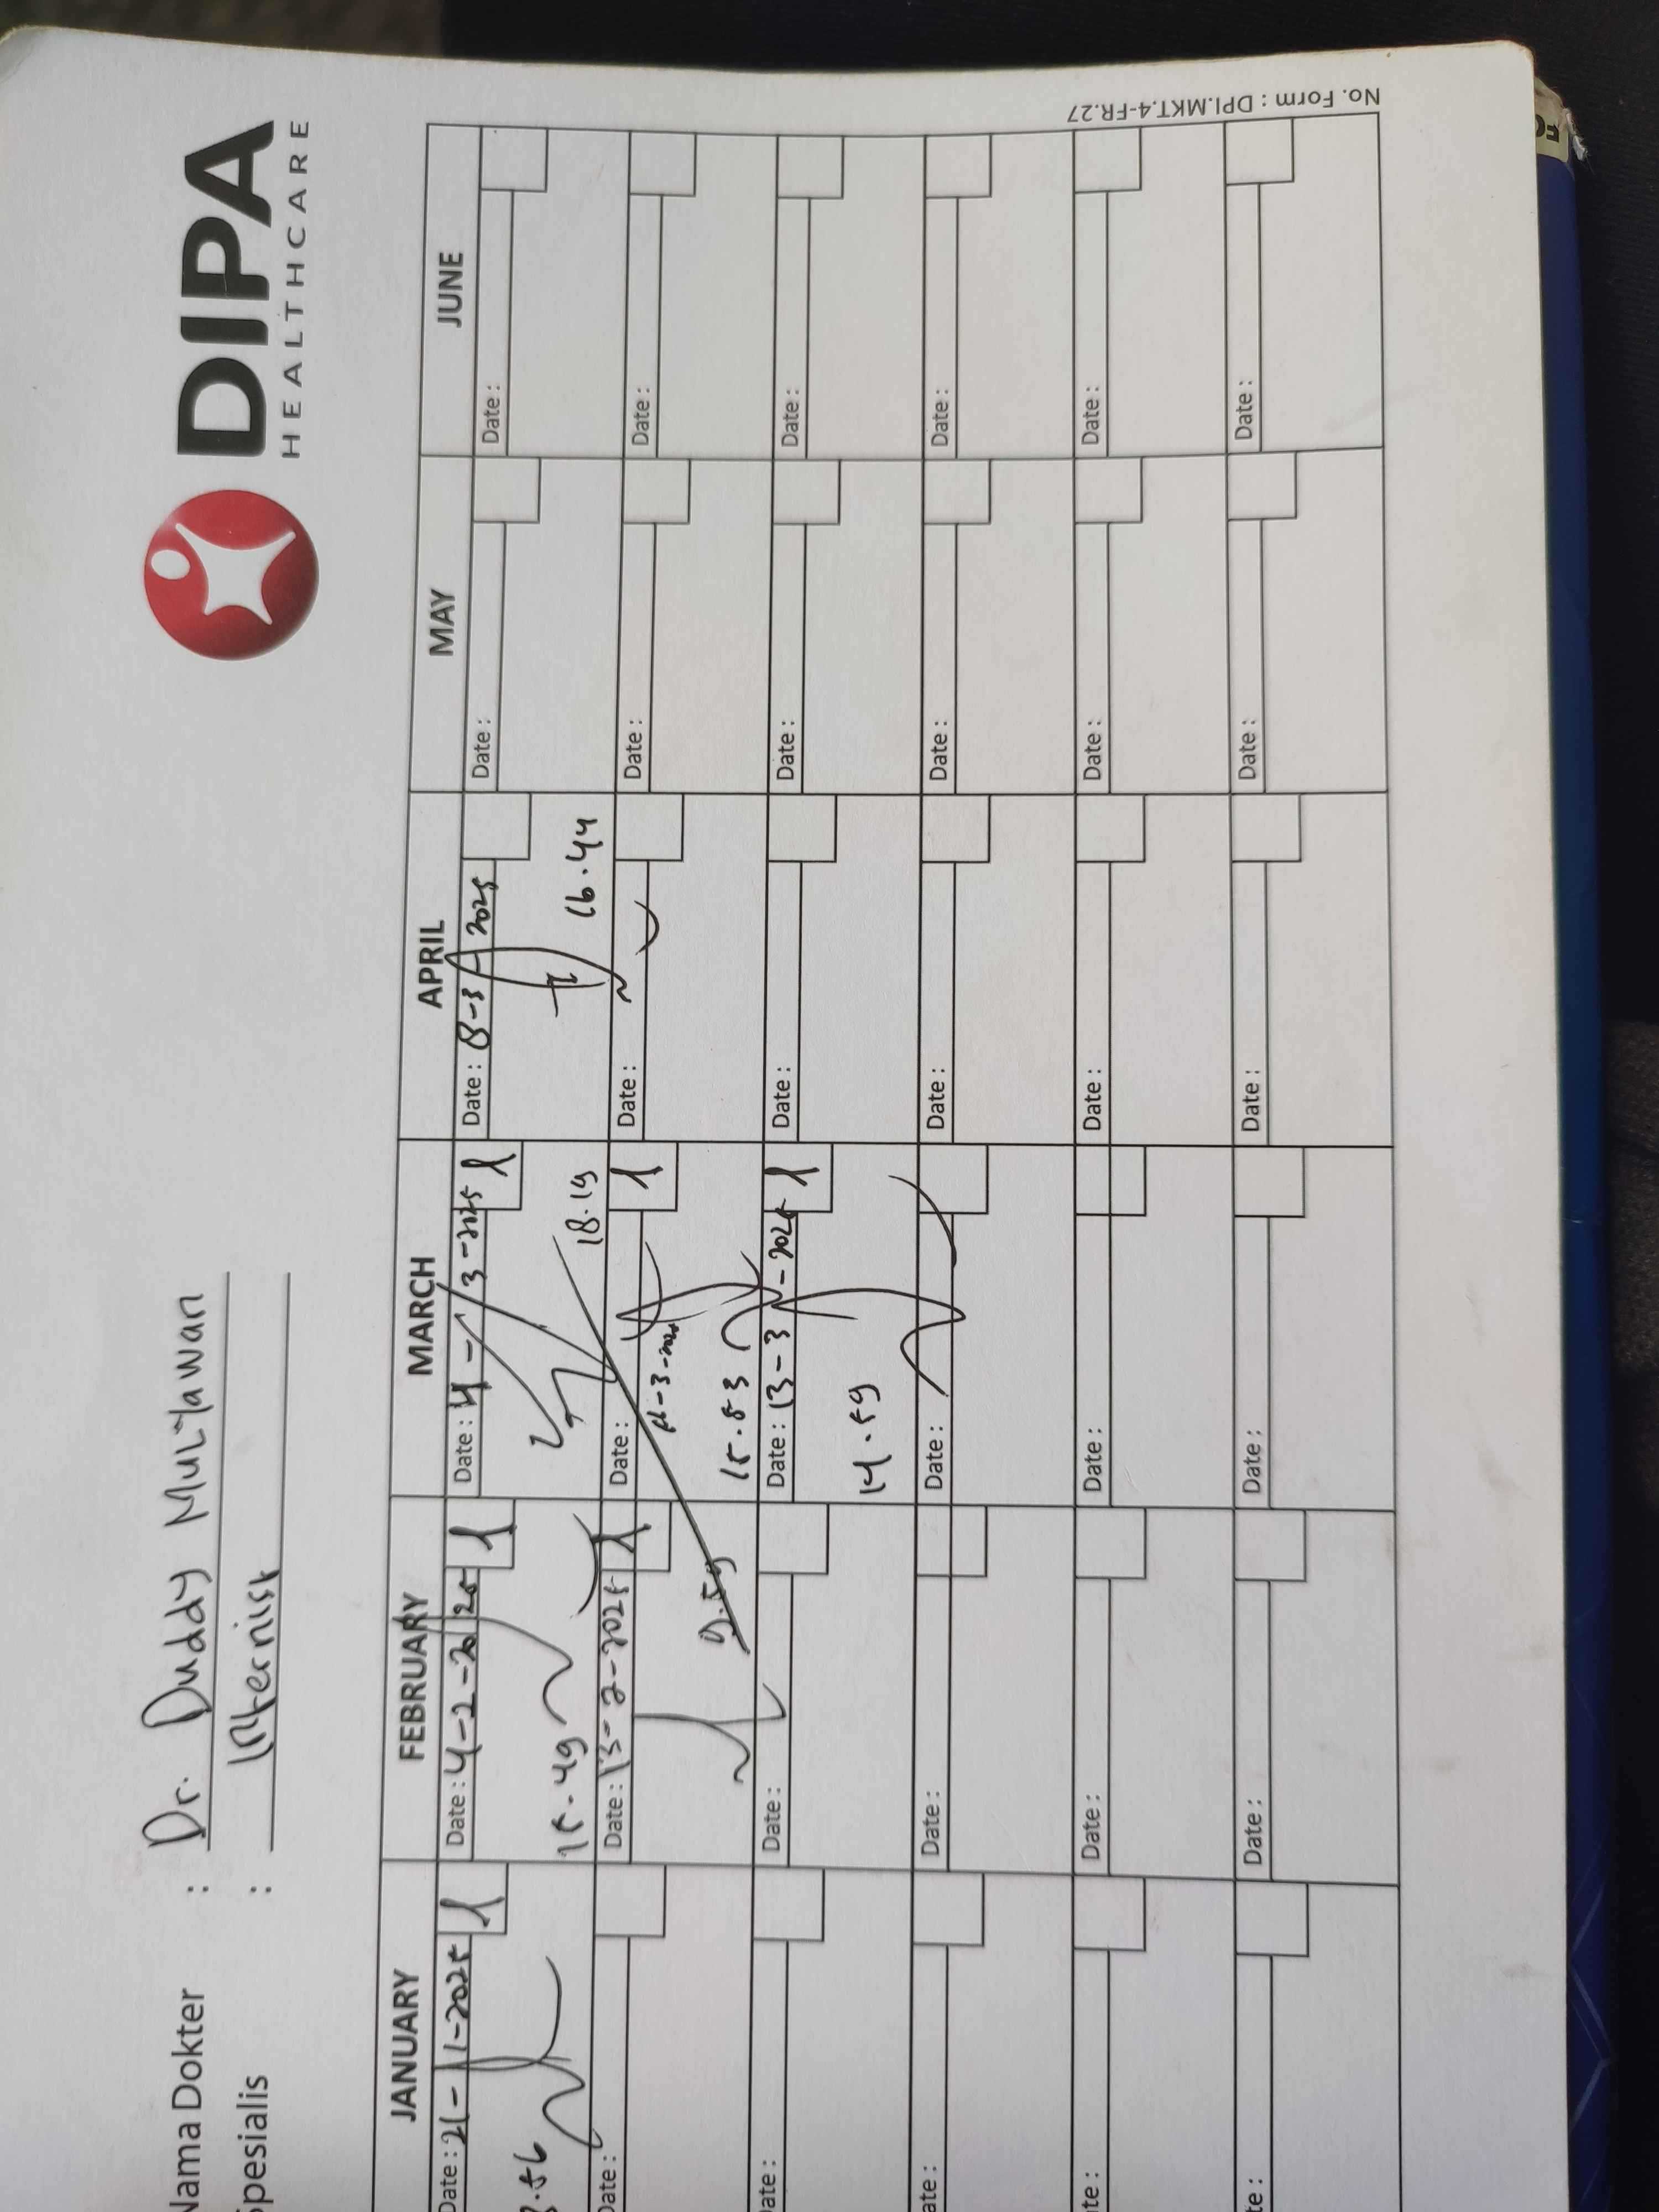 DIPA
HEALTHCARE
Nama Dokter : Dr. Duddy Mulyawan
Spesialis : Internist
JANUARY FEBRUARY MARCH APRIL MAY JUNE
Date : 21-1-2025 1 Date : 4-2-2025 1 Date : 4-3-2025 1 Date : 8-3-2025 Date : Date :
.56 15.49 18.19 16.44
Date : Date : 13-2-2025 1 Date : 1 Date : Date : Date :
11-3-2025
9.59 15.53
Date : Date : Date : 13-3-2025 1 Date : Date : Date :
14.59
Date : Date : Date : Date : Date : Date :
Date : Date : Date : Date : Date : Date :
Date : Date : Date : Date : Date : Date :
No. Form : DPI.MKT.4-FR.27